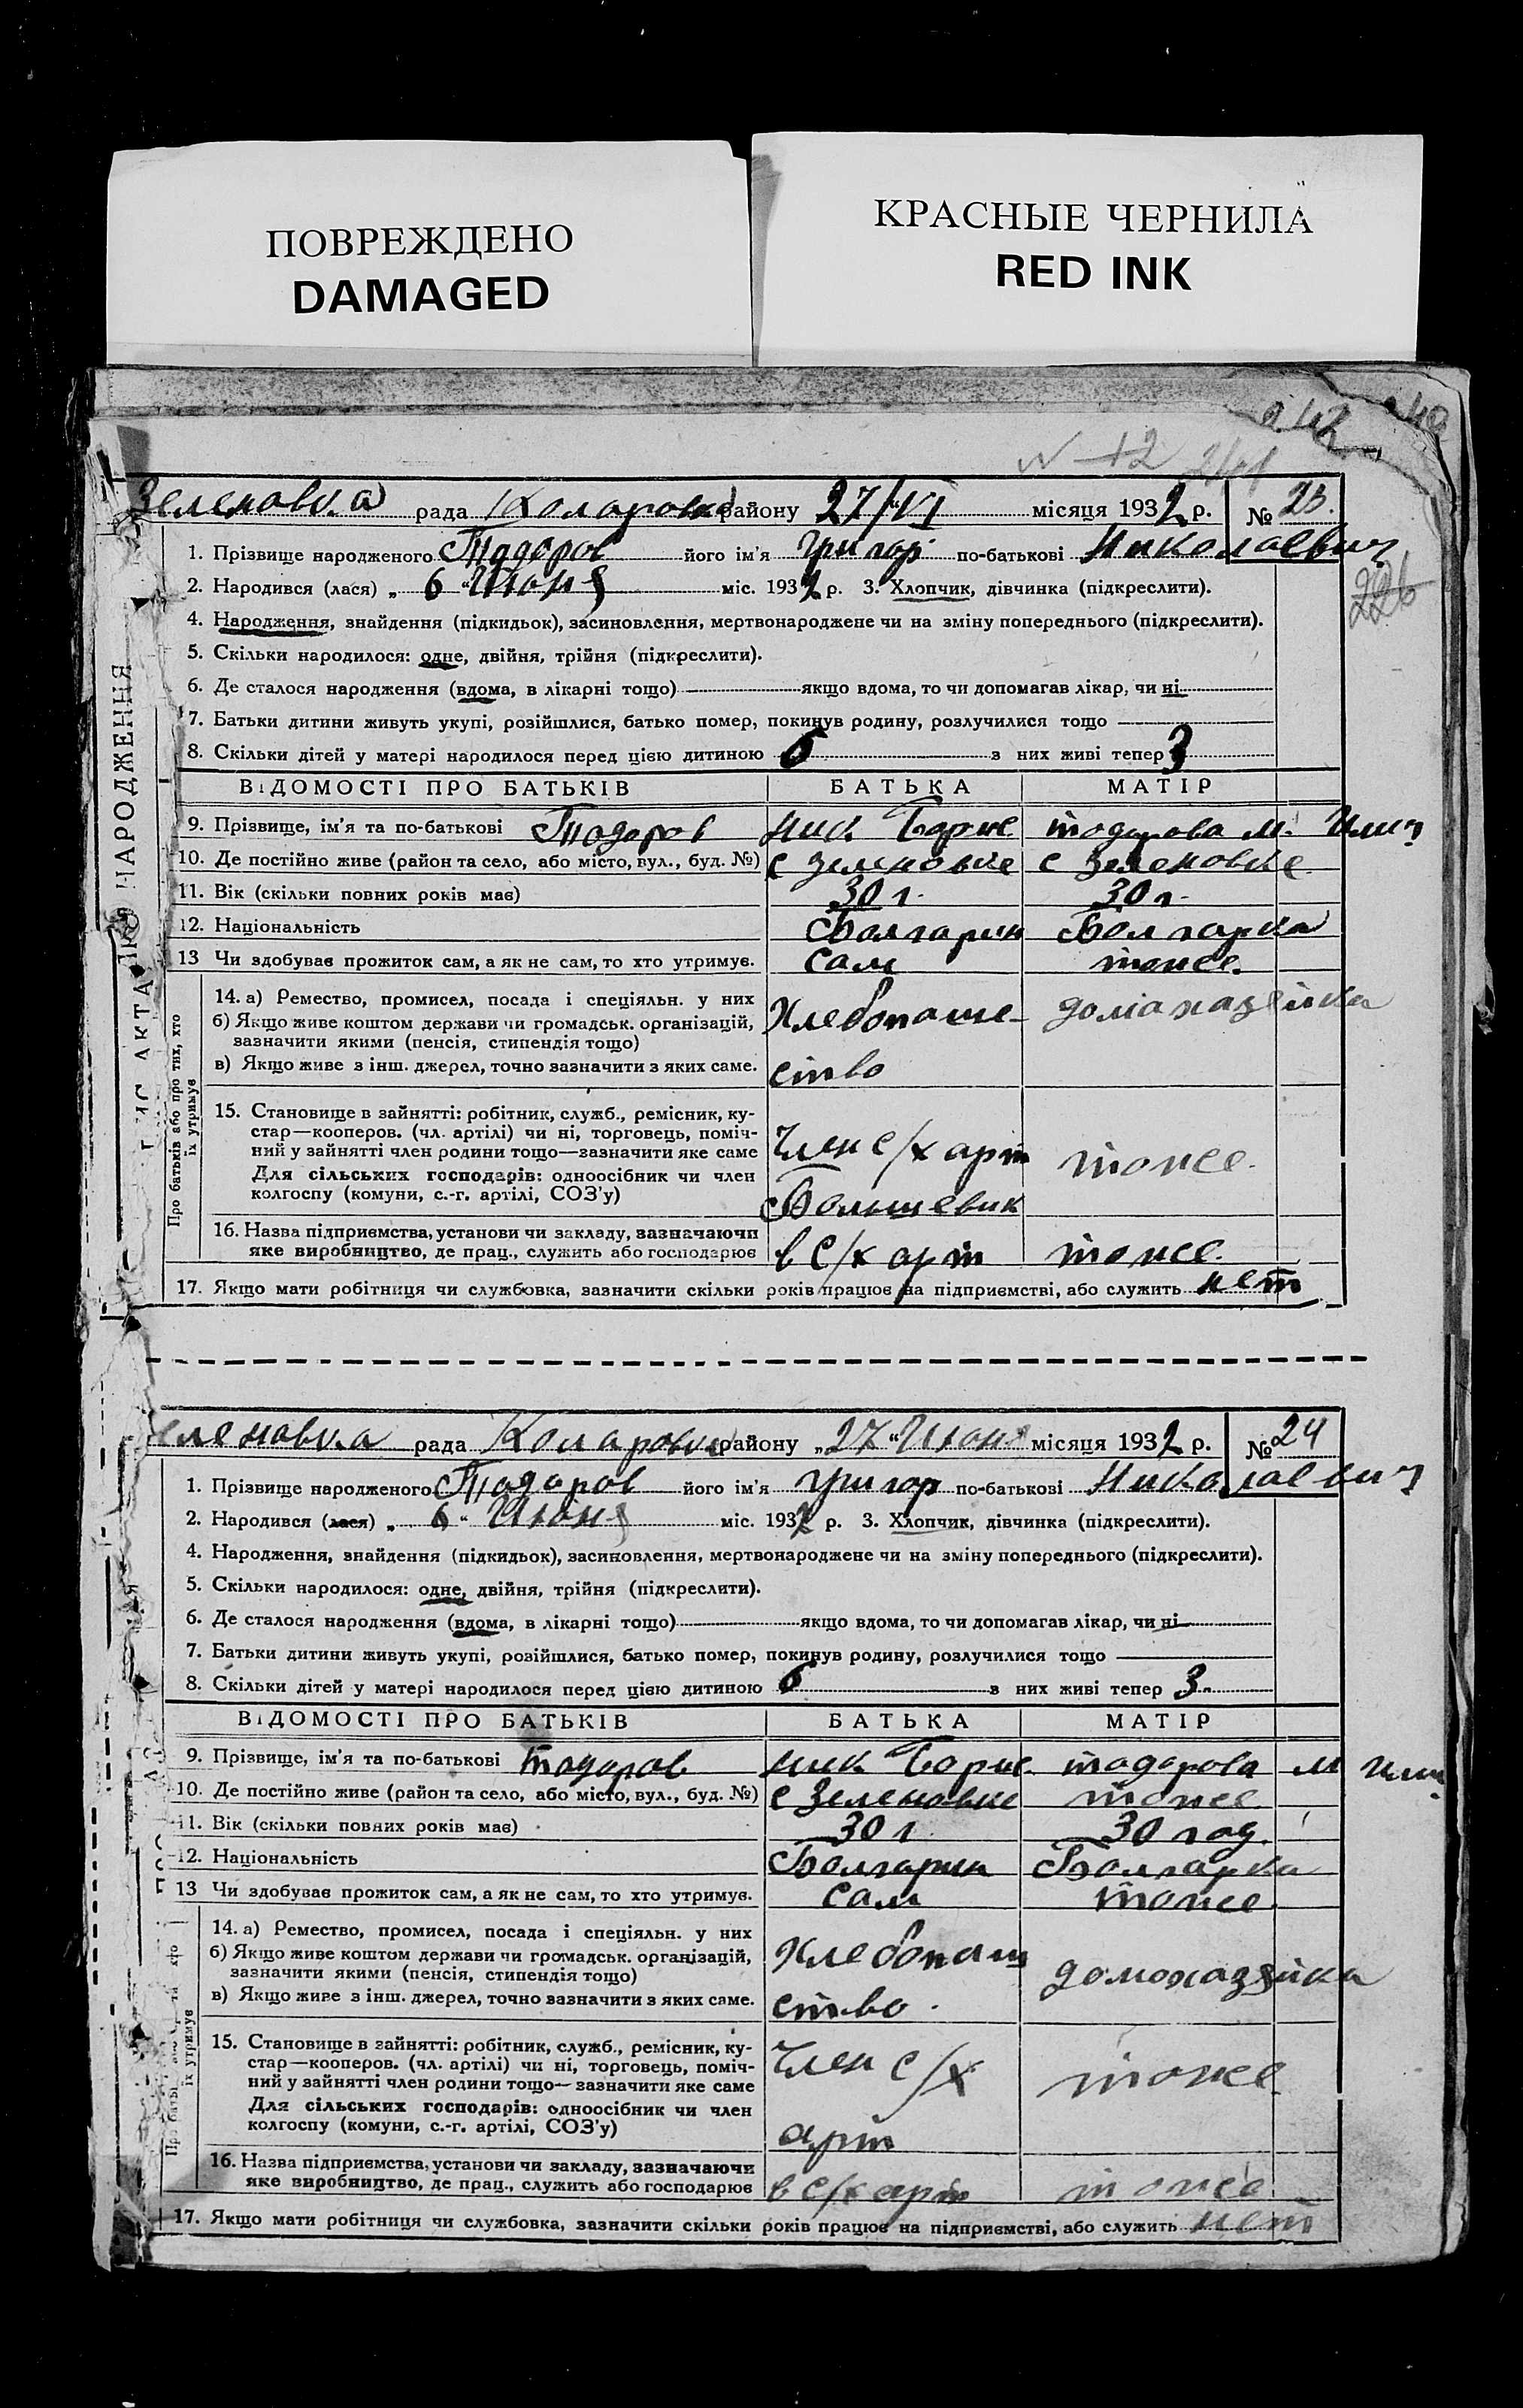 ПОВРЕЖДЕНО
DAMAGED
КРАСНЫЕ ЧЕРНИЛА
RED INK
Зеленовка рада Коларовка району 27/VI місяця 1932 р. № 23.
1. Прізвище народженого Тодоров його ім'я Григор по-батькові Николаевич
226
2. Народився (лася) „ 6 “ Июня міс. 1932 р. 3. Хлопчик, дівчинка (підкреслити).
4. Народження, знайдення (підкидьок), засиновлення, мертвонароджене чи на зміну попереднього (підкреслити).
5. Скільки народилося: одне, двійня, трійня (підкреслити).
6. Де сталося народження (вдома, в лікарні тощо) якщо вдома, то чи допомагав лікар, чи ні
7. Батьки дитини живуть укупі, розійшлися, батько помер, покинув родину, розлучилися тощо
8. Скільки дітей у матері народилося перед цією дитиною 6 з них живі тепер 3
ВІДОМОСТІ ПРО БАТЬКІВ БАТЬКА МАТІР
9. Прізвище, ім'я та по-батькові Тодоров Ник Борис тодорова М. Илич
10. Де постійно живе (район та село, або місто, вул., буд. №) с Зеленовке с Зеленовке
11. Вік (скільки повних років має) 30 г. 30 г.
12. Національність Болгарин Болгарка
13 Чи здобував прожиток сам, а як не сам, то хто утримує. Сам тоже
Про батьків або про тих, хто їх утримує
14. а) Ремество, промисел, посада і спеціяльн. у них
б) Якщо живе коштом держави чи громадськ. організацій,
зазначити якими (пенсія, стипендія тощо)
в) Якщо живе з інш. джерел, точно зазначити з яких саме.
Хлебопаше-
ство
домахазяйка
15. Становище в зайнятті: робітник, служб., ремісник, ку-
стар—кооперов. (чл. артілі) чи ні, торговець, поміч-
ний у зайнятті член родини тощо—зазначити яке саме
Для сільських господарів: одноосібник чи член
колгоспу (комуни, с.-г. артілі, СОЗ'у)
Член с/х арт
Большевик
тоже
16. Назва підприємства, установи чи закладу, зазначаючи
яке виробництво, де прац., служить або господарює
в с/х арт тоже
17. Якщо мати робітниця чи службовка, зазначити скільки років працює на підприємстві, або служить нет
еленовка рада Коларовка району „ 27 “ Июня місяця 1932 р. № 24
1. Прізвище народженого Тодоров його ім'я Григор по-батькові Николаевич
2. Народився (лася) „ 6 “ Июня міс. 1932 р. 3. Хлопчик, дівчинка (підкреслити).
4. Народження, знайдення (підкидьок), засиновлення, мертвонароджене чи на зміну попереднього (підкреслити).
5. Скільки народилося: одне, двійня, трійня (підкреслити).
6. Де сталося народження (вдома, в лікарні тощо) якщо вдома, то чи допомагав лікар, чи ні
7. Батьки дитини живуть укупі, розійшлися, батько помер, покинув родину, розлучилися тощо
8. Скільки дітей у матері народилося перед цією дитиною 6 з них живі тепер 3.
ВІДОМОСТІ ПРО БАТЬКІВ БАТЬКА МАТІР
9. Прізвище, ім'я та по-батькові тодоров ник Борис тодорова М
10. Де постійно живе (район та село, або місто, вул., буд. №) с Зеленовке тоже
11. Вік (скільки повних років має) 30 г 30 год.
12. Національність Болгарин Болгарка
13 Чи здобував прожиток сам, а як не сам, то хто утримує. Сам тоже
14. а) Ремество, промисел, посада і спеціяльн. у них
б) Якщо живе коштом держави чи громадськ. організацій,
зазначити якими (пенсія, стипендія тощо)
в) Якщо живе з інш. джерел, точно зазначити з яких саме.
Хлебопаш
ство.
домохазяйка
15. Становище в зайнятті: робітник, служб., ремісник, ку-
стар—кооперов. (чл. артілі) чи ні, торговець, поміч-
ний у зайнятті член родини тощо—зазначити яке саме
Для сільських господарів: одноосібник чи член
колгоспу (комуни, с.-г. артілі, СОЗ'у)
Член с/х
арт
тоже
16. Назва підприємства, установи чи закладу, зазначаючи
яке виробництво, де прац., служить або господарює
в с/х арт тоже
17. Якщо мати робітниця чи службовка, зазначити скільки років працює на підприємстві, або служить нет